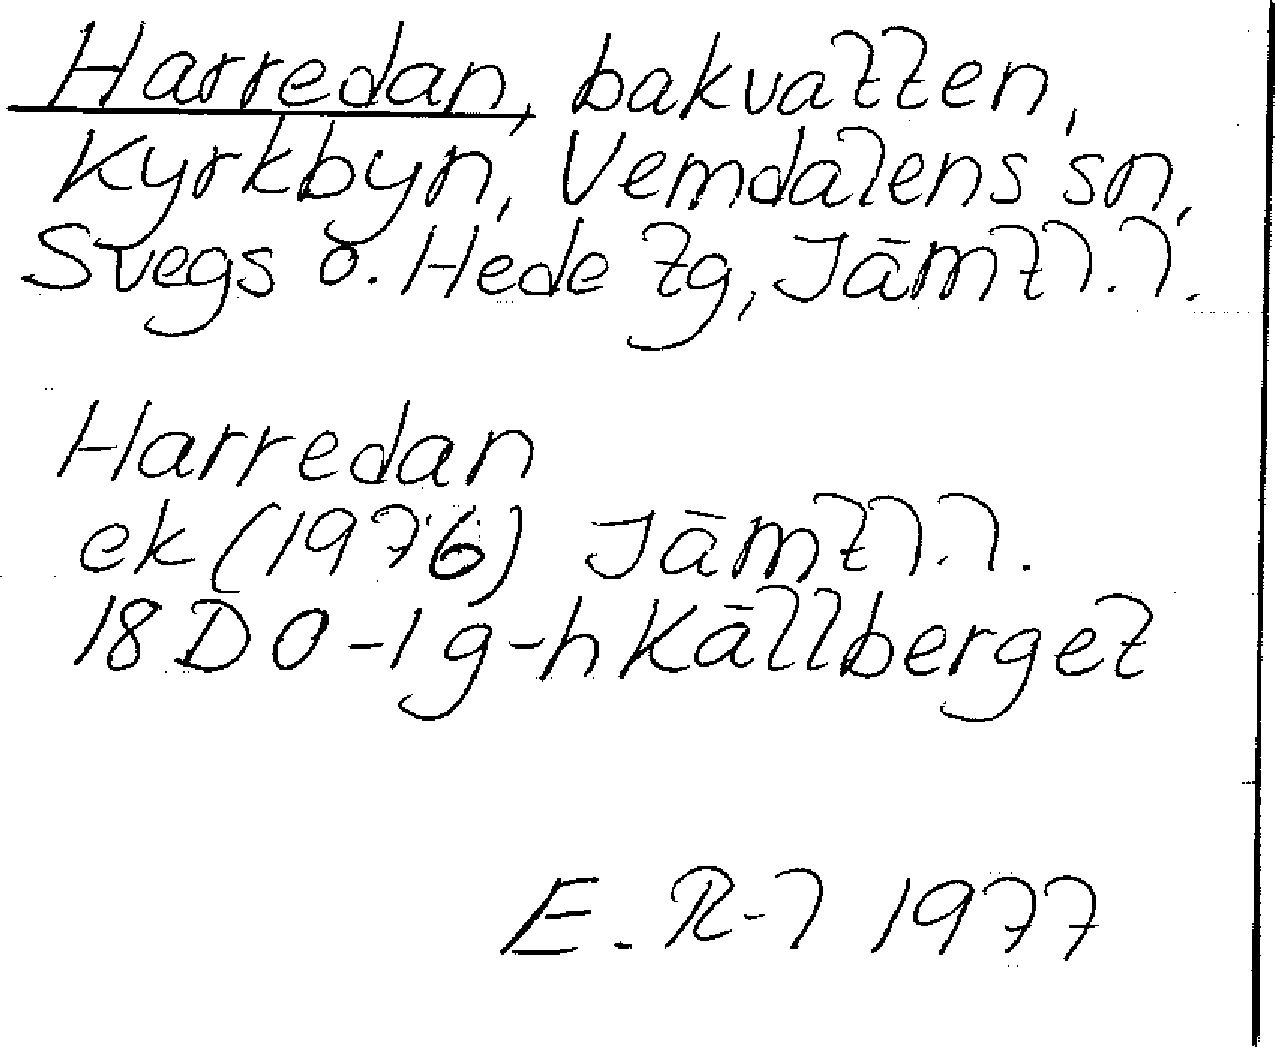 Harredan, bakvatten,
Kyrkbyn, Vemdalens sn,
Svegs o. Hede tg, Jämtl.l.
Harredan
ek (1976) Jämtl.l.
18D 0-1 g-h Källberget
E. R-l 1977